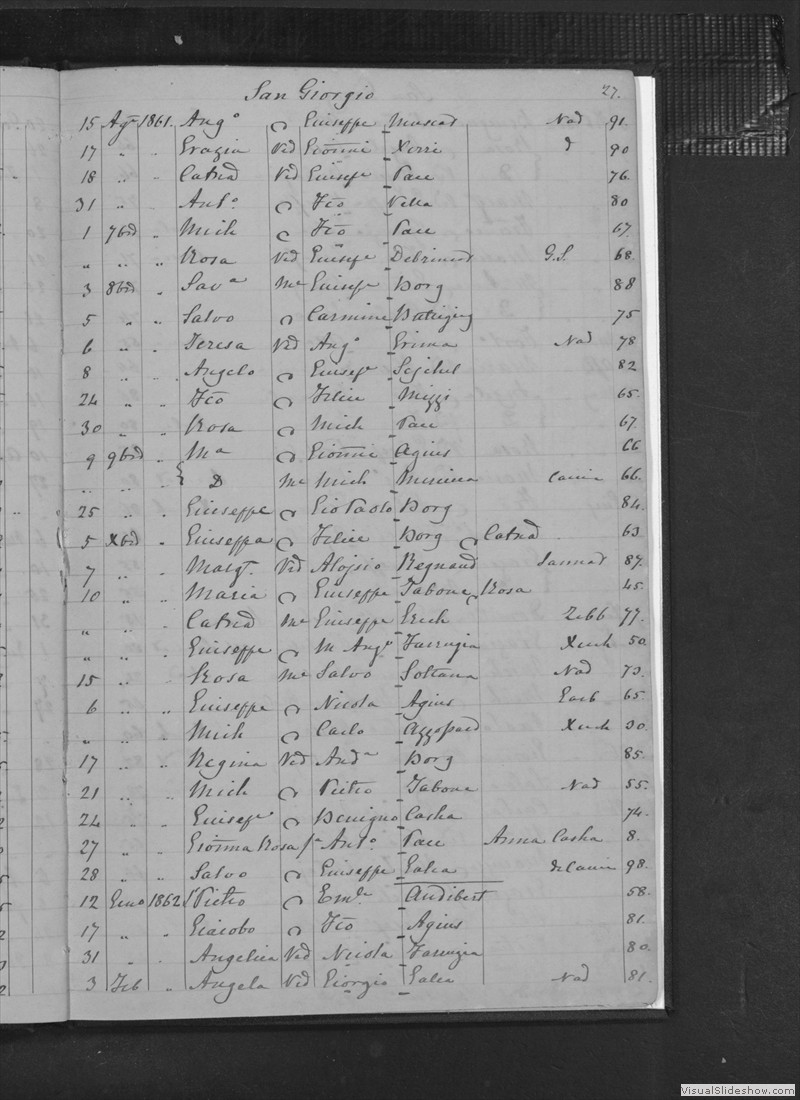 San Giorgio 27.
15 Agto 1861. Ango Giuseppe Muscat Nad 91.
17 " " Grazia Ved Gionni Xerri d 90
18 " " Catna Ved Giusepe Pace 76.
31 " " Anto Fco Vella 80
1 7bre " Mich Fco Pace 67.
" " " Rosa Ved Giusepe G.S. 68.
3 8bre " Sava Me Giusepe Borg 88
5 " " Salvo Carmine 75
6 " " Teresa Ved Ango Grima Nad 78
8 " " Angelo Giusepe 82
24 " " Fco Felice Mizzi 65.
30 " " Rosa Mich Pace 67.
9 9bre " Ma Gionni Agius 66
" " " D Me Mich 66.
25 " " Giuseppe Gio Paolo Borg 84.
5 Xbre " Giuseppa Felice Borg Catna 63
7 " " Margt. Ved Alojsio Regnaud Sannat 87.
10 " " Maria Giuseppe Tabone Rosa 45.
" " " Catna Me Giuseppe Zebb 77.
" " " Giuseppe M Ango Farrugia Xeuk 50
15 " " Rosa Me Salvo Soltana Nad 73.
6 " " Giuseppe Nicola Agius Garb 65
" " " Mich Carlo Azzopard Xeuk 30.
17 " " Regina Ved Anda Borg 85.
21 " " Mich Pietro Tabone Nad 55.
24 " " Giusepe Benigno Casha 74.
27 " " Gionna Rosa fa Anto Pace Anna Casha 8.
28 " " Salvo Giuseppe Galea 98.
12 Geno 1862 Pietro Emle Audibert 58.
17 " " Giacobo Fco Agius 81.
31 " " Angelica Ved Nicola Farrugia 80.
3 Feb " Angela Ved Giorgio Galea Nad 81.
VisualSlideshow.com